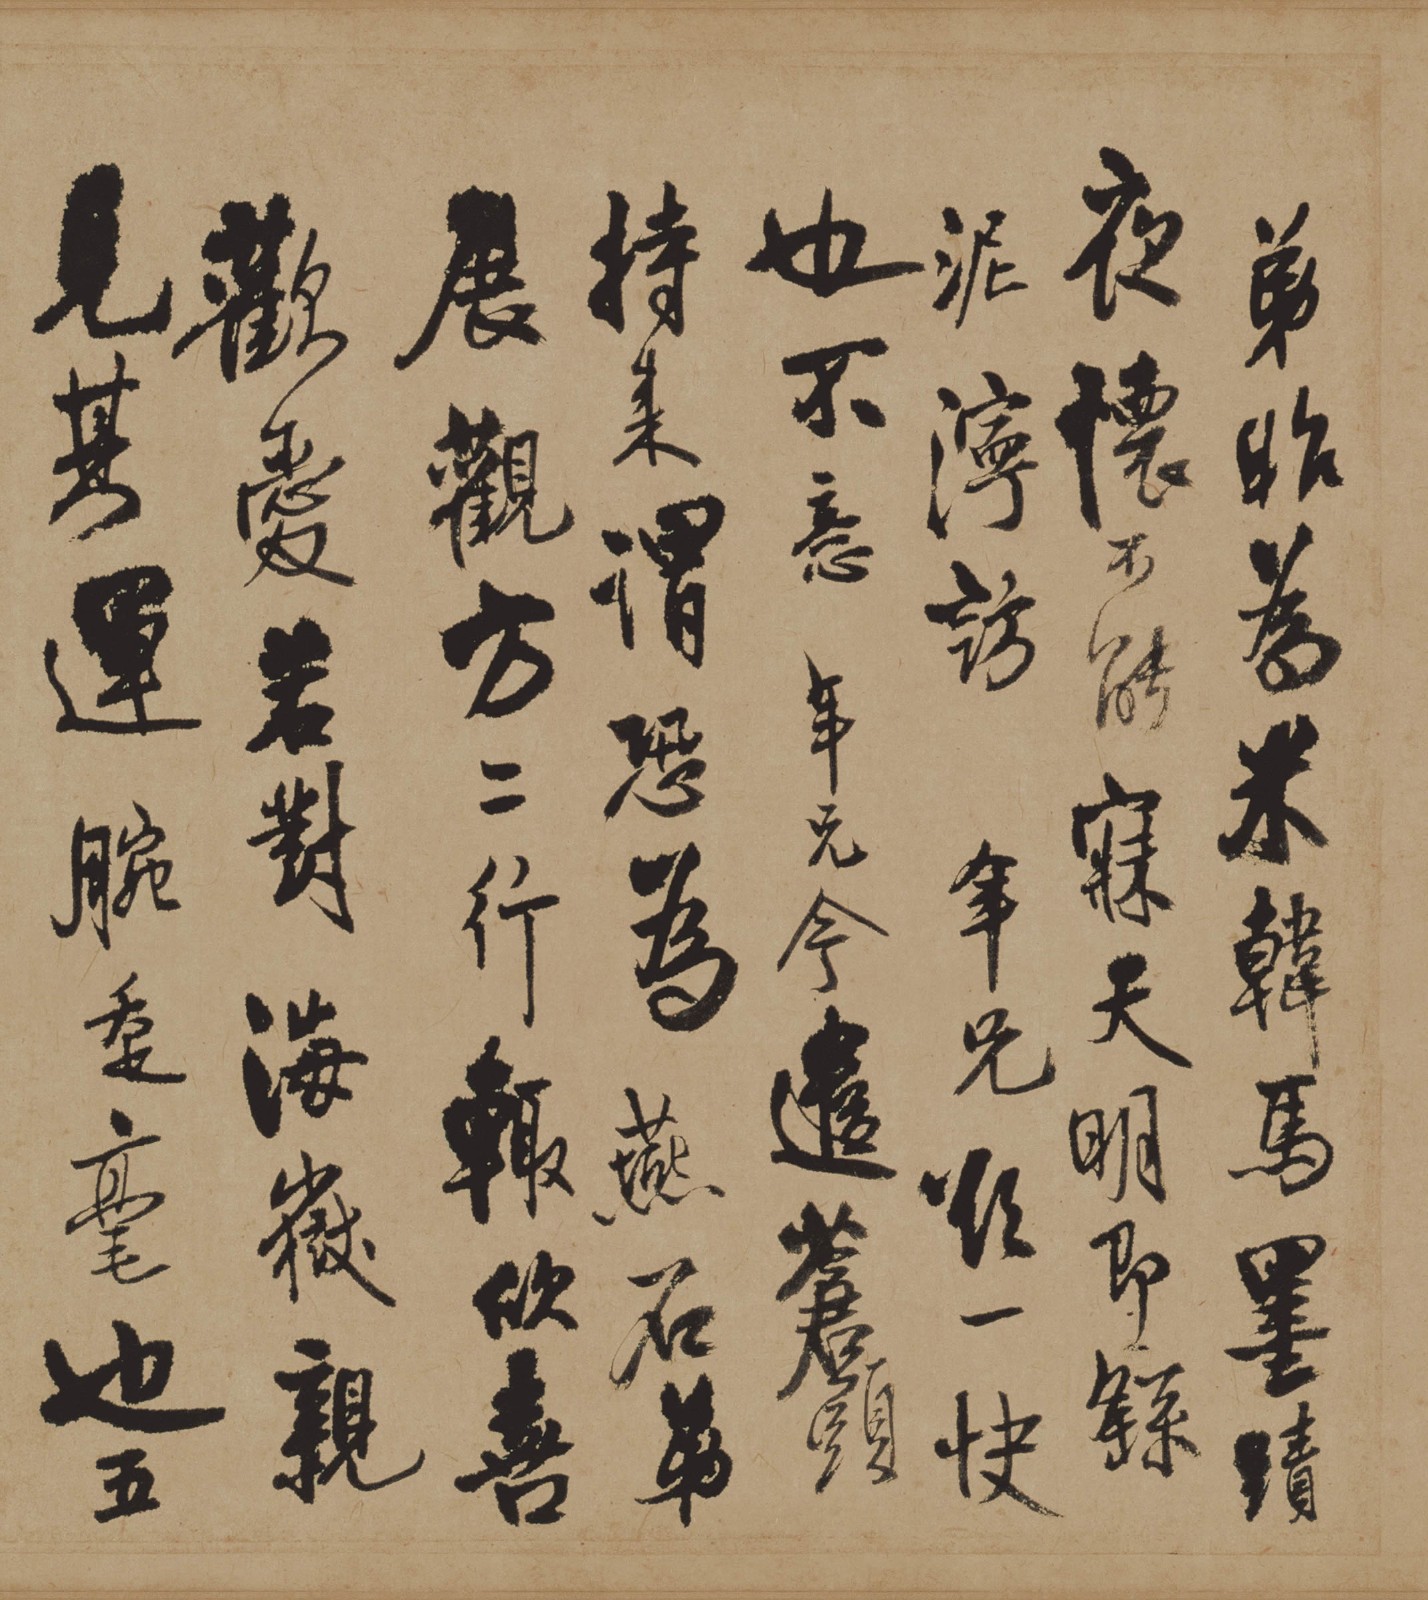 弟昨為米韓馬墨蹟
夜懷不能寐天明即
泥濘訪年兄一快
也不意年兄今遣蒼頭
持来謂恐為燕石弟
展觀方二行輙欣喜
歡愛若對海嶽親
見其運腕垂毫也五